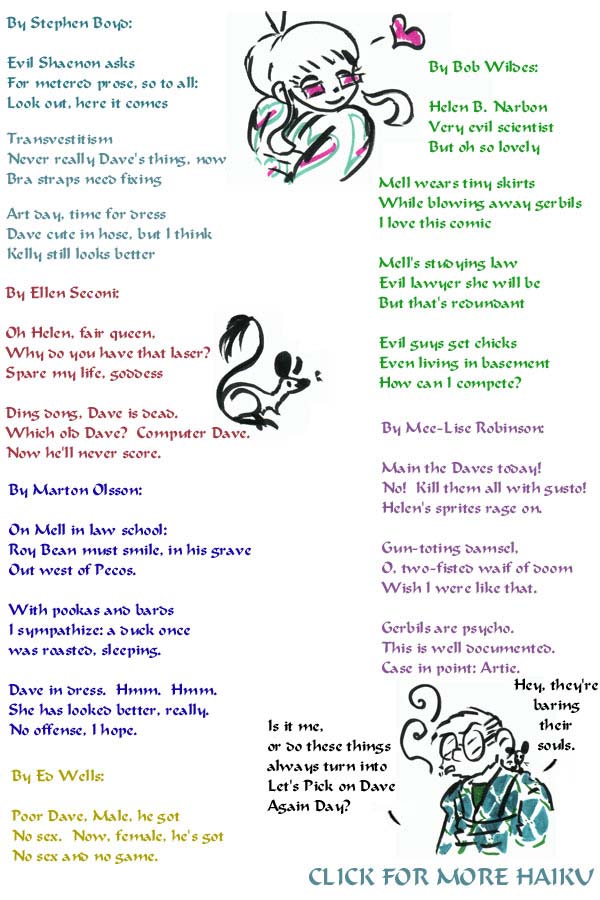 By Stephen Boyd:
Evil Shaenon asks
For metered prose, so to all:
Look out, here it comes
Transvestitism
Never really Dave's thing, now
Bra straps need fixing
Art day, time for dress
Dave cute in hose, but I think
Kelly still looks better
By Ellen Seconi:
Oh Helen, fair queen,
Why do you have that laser?
Spare my life, goddess
Ding dong, Dave is dead.
Which old Dave? Computer Dave.
Now he'll never score.
By Marton Olsson:
On Mell in law school:
Roy Bean must smile, in his grave
Out west of Pecos.
With pookas and bards
I sympathize: a duck once
was roasted, sleeping.
Dave in dress. Hmm. Hmm.
She has looked better, really.
No offense, I hope.
By Ed Wells:
Poor Dave, Male, he got
No sex. Now, female, he's got
No sex and no game.
By Bob Wildes:
Helen B. Narbon
Very evil scientist
But oh so lovely
Mell wears tiny skirts
While blowing away gerbils
I love this comic
Mell's studying law
Evil lawyer she will be
But that's redundant
Evil guys get chicks
Even living in basement
How can I compete?
By Mee-Lise Robinson:
Maim the Daves today!
No! Kill them all with gusto!
Helen's sprites rage on.
Gun-toting damsel,
O, two-fisted waif of doom
Wish I were like that.
Gerbils are psycho.
This is well documented.
Case in point: Artie.
Is it me,
or do these things
always turn into
Let's Pick on Dave
Again Day?
Hey, they're
baring
their
souls.
CLICK FOR MORE HAIKU